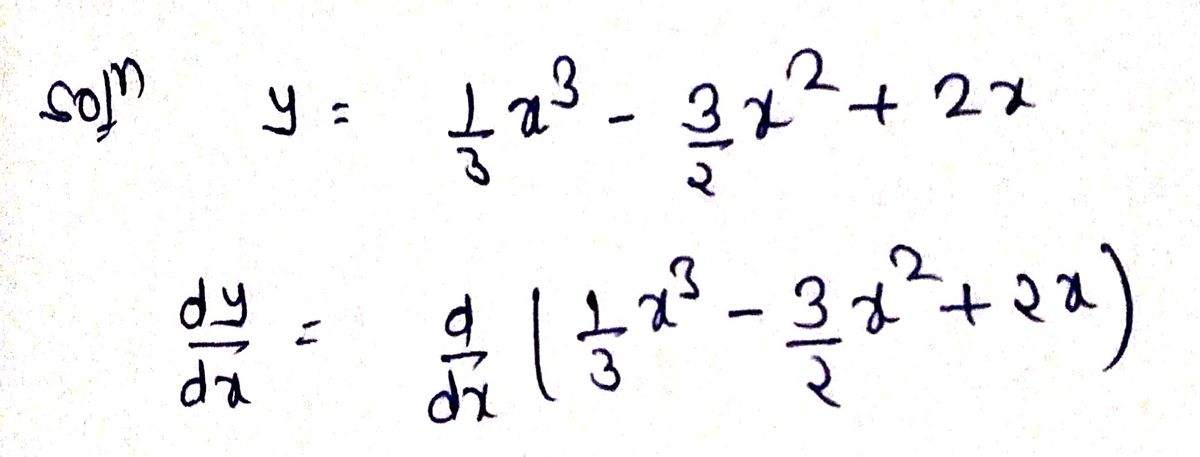 Solⁿ y = 1/3 x³ - 3/2 x² + 2x
dy/dx = d/dx (1/3 x³ - 3/2 x² + 2x)